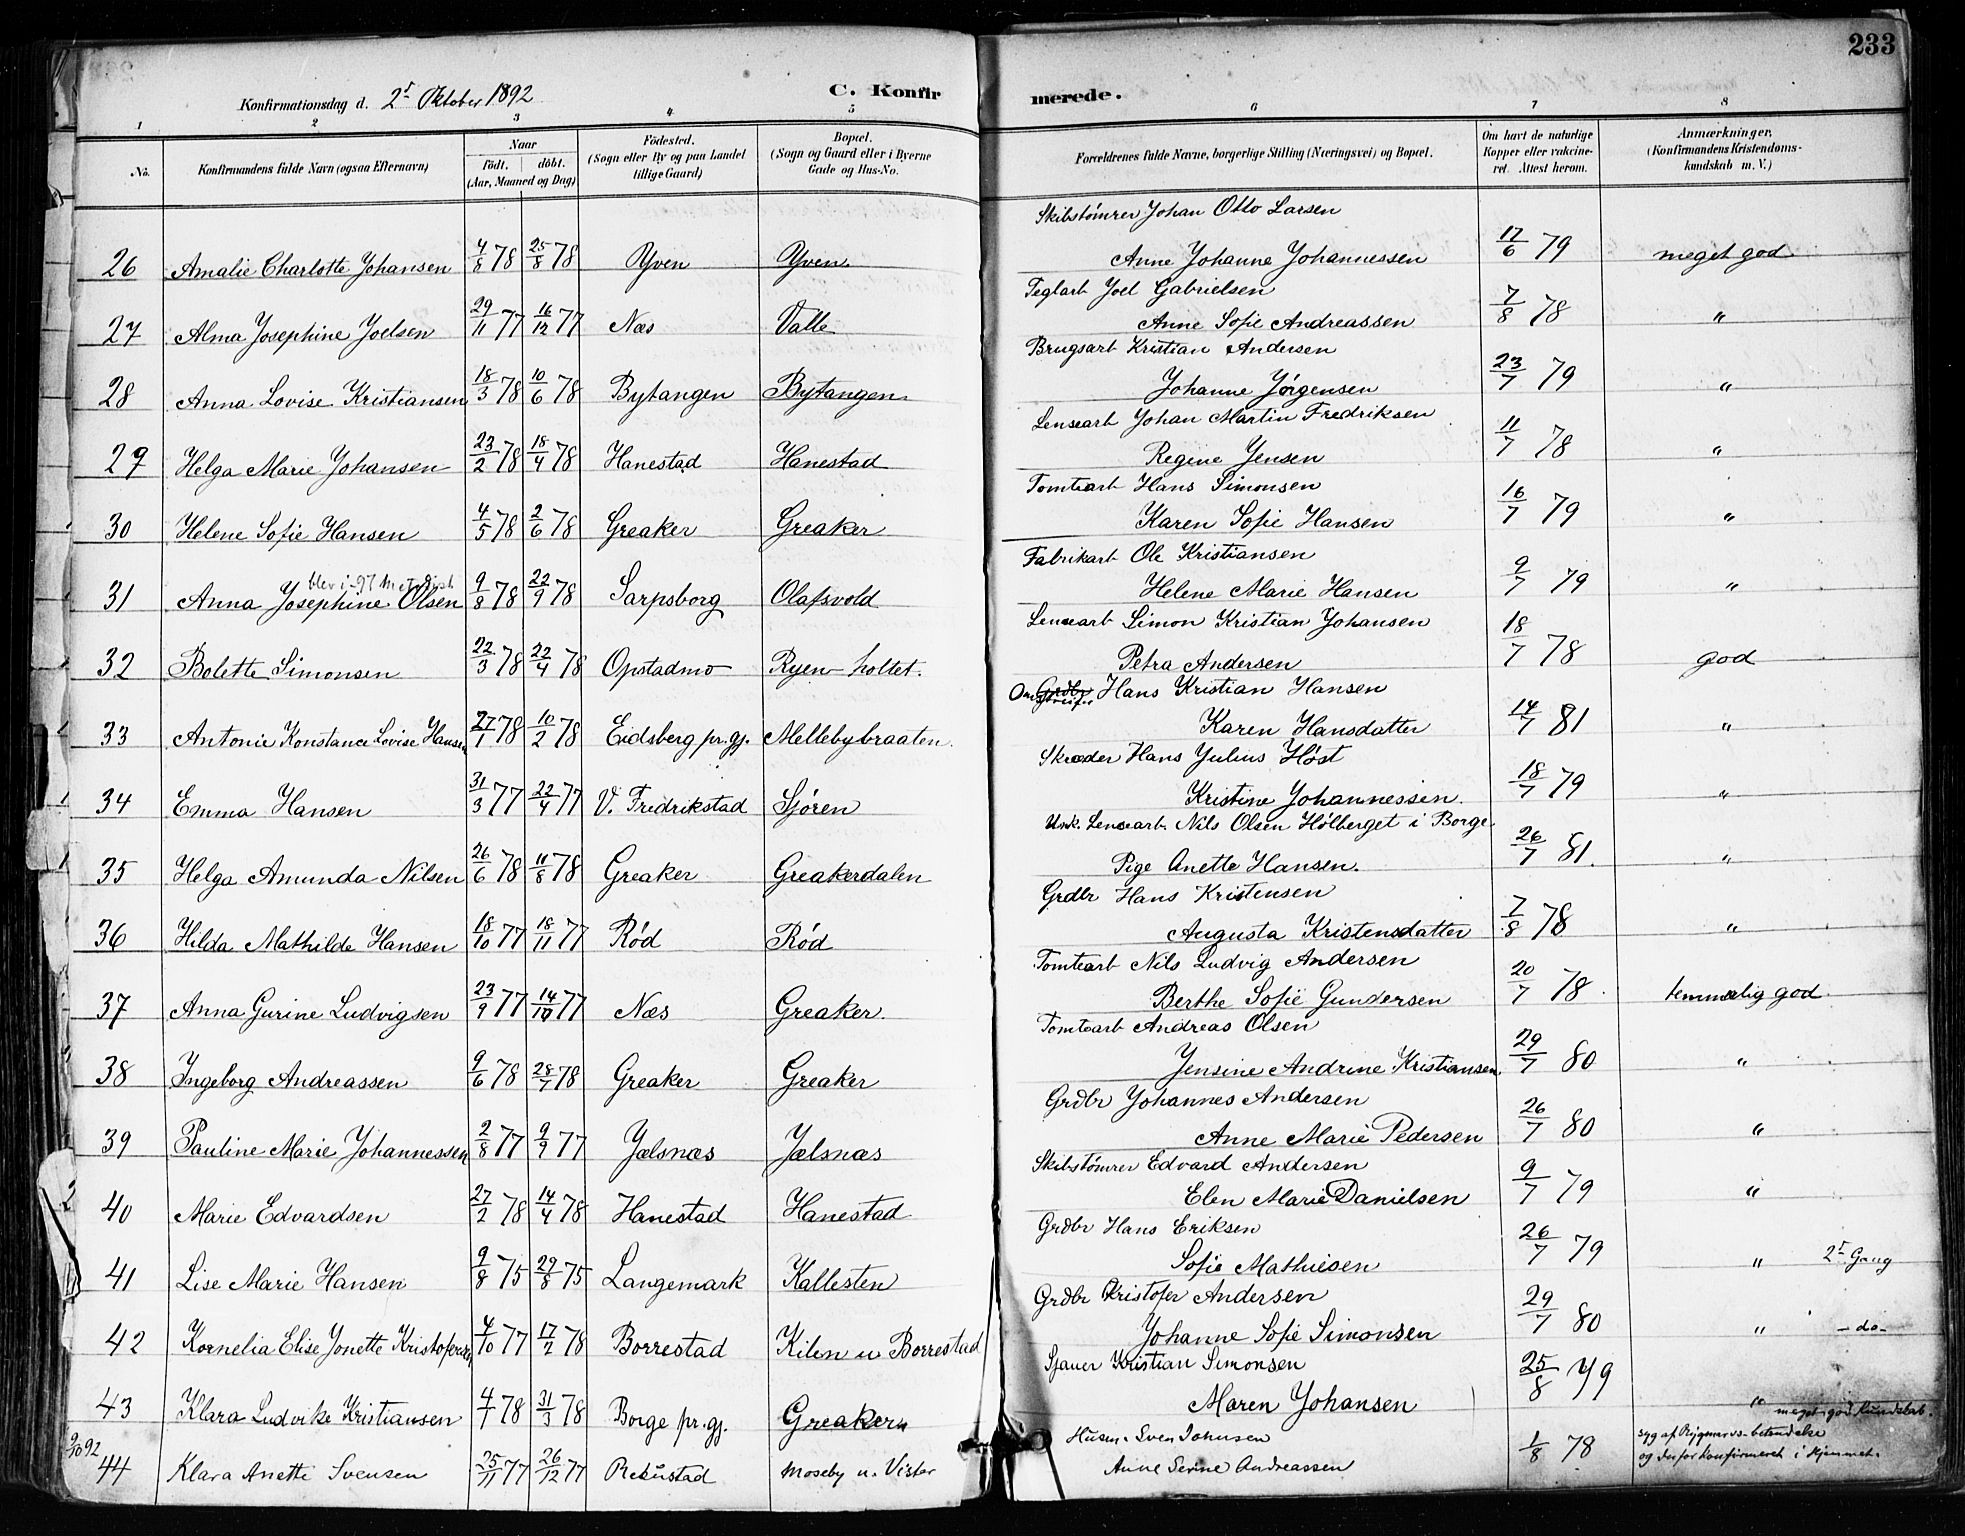 233
Konfirmationsdag d. 2ᵗ Oktober 1892. C. Konfirmerede.
1 2 3 4 5 6 7 8
No. Konfirmandens fulde Navn (ogsaa Efternavn) Naar födt. döbt. (Aar, Maaned og Dag) Födested. (Sogn eller By og paa Landet tillige Gaard) Bopæl. (Sogn og Gaard eller i Byerne Gade og Hus-No. Forældrenes fulde Navne, borgerlige Stilling (Næringsvei) og Bopæl. Om havt de naturlige Kopper eller vakcineret. Attest herom. Anmærkninger. (Konfirmandens Kristendomskundskab m. V.)
Skibstömrer Johan Otto Larsen
26 Amalie Charlotte Johansen 4/8 78 25/8 78 Yven Yven Anne Johanne Johannessen 17/6 79 meget god
Teglarb Joel Gabrielsen
27 Alma Josephine Joelsen 29/11 77 16/12 77 Næs Valle Anne Sofie Andreassen 7/8 78 "
Brugsarb Kristian Andersen
28 Anna Lovise Kristiansen 18/3 78 10/6 78 Bytangen Bytangen Johanne Jörgensen 23/7 79 "
Lensearb Johan Martin Fredriksen
29 Helga Marie Johansen 23/2 78 18/4 78 Hanestad Hanestad Regine Jensen 11/7 78 "
Tomtearb Hans Simonsen
30 Helene Sofie Hansen 4/5 78 2/6 78 Greaker Greaker Karen Sofie Hansen 16/7 79 "
Fabrikarb Ole Kristiansen
blev i -97 Metodist
31 Anna Josephine Olsen 9/8 78 22/9 78 Sarpsborg Olafsvold Helene Marie Hansen 9/7 79 "
Lensearb Simon Kristian Johansen
32 Bolette Simonsen 22/3 78 22/4 78 Opstadmo Ryen holtet. Petra Andersen 18/7 78 god
Grdbr Hans Kristian Hansen
33 Antonie Konstance Lovise Hansen 27/1 78 10/2 78 Eidsberg pr.gj. Mellebybraaten. Karen Hansdatter 14/7 81 "
Skræder Hans Julius Höst
34 Emma Hansen 31/3 77 22/4 77 V. Fredrikstad Sjören Kristine Johannessen. 18/7 79 "
Unk. Lensearb. Nils Olsen Hölberget i Borge.
35 Helga Amunda Nilsen 26/6 78 11/8 78 Greaker Greakerdalen Pige Anette Hansen. 26/7 81. "
Grdbr Hans Kristensen
36 Hilda Mathilde Hansen 18/10 77 18/11 77 Röd Röd Augusta Kristensdatter 7/8 78 "
Tomtearb Nils Ludvig Andersen
37 Anna Gurine Ludvigsen 23/9 77 14/10 77 Næs Greaker. Berthe Sofie Gundersen 20/7 78. temmelig god
Tomtearb Andreas Olsen
38 Ingeborg Andreassen 9/6 78 28/7 78 Greaker Greaker Jensine Andrine Kristiansen. 29/7 80 "
Grdbr Johannes Andersen
39 Pauline Marie Johannessen 2/8 77 9/9 77 Jælsnæs Jælsnæs Anne Marie Pedersen 26/7 80 "
Skibstömrer Edvard Andersen
40 Marie Edvardsen 27/2 78 14/4 78 Hanestad Hanestad Elen Marie Danielsen 9/7 79 "
Grdbr Hans Eriksen
41 Lise Marie Hansen 9/8 75 29/8 75 Langemark Kallesten Sofie Mathiesen 26/7 79 " 2ᵗ Gang
Grdbr Kristofer Andersen
42 Kornelia Elise Jonette Kristofersen 4/10 77 17/2 78 Borrestad Kilen u Borrestad Johanne Sofie Simonsen 29/7 80 " -do-
Sjauer Kristian Simonsen
43 Klara Ludvike Kristiansen 4/1 78 31/3 78 Borge pr.gj. Greaker Maren Johansen 25/8 79 "
meget god Kundskab.
Husm. Sven Johnsen syg af Rygmarvs-betændelse
9/10 92
44 Klara Anette Svensen 25/11 77 26/12 77 Rekustad Moseby u. Vister Anne Serine Andreassen 1/8 78 og derfor konfirmeret i Hjemmet.